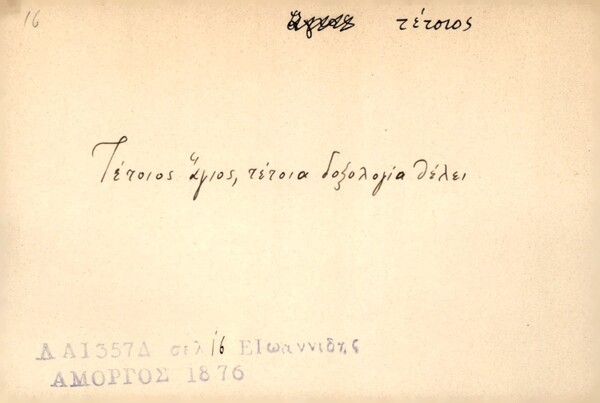 16
τέτοιος
Τέτοιος ἅγιος, τέτοια δοξολογία θέλει
ΛΑ Ι 357Δ σελ 16 ΕΙωαννίδης
ΑΜΟΡΓΟΣ 1876